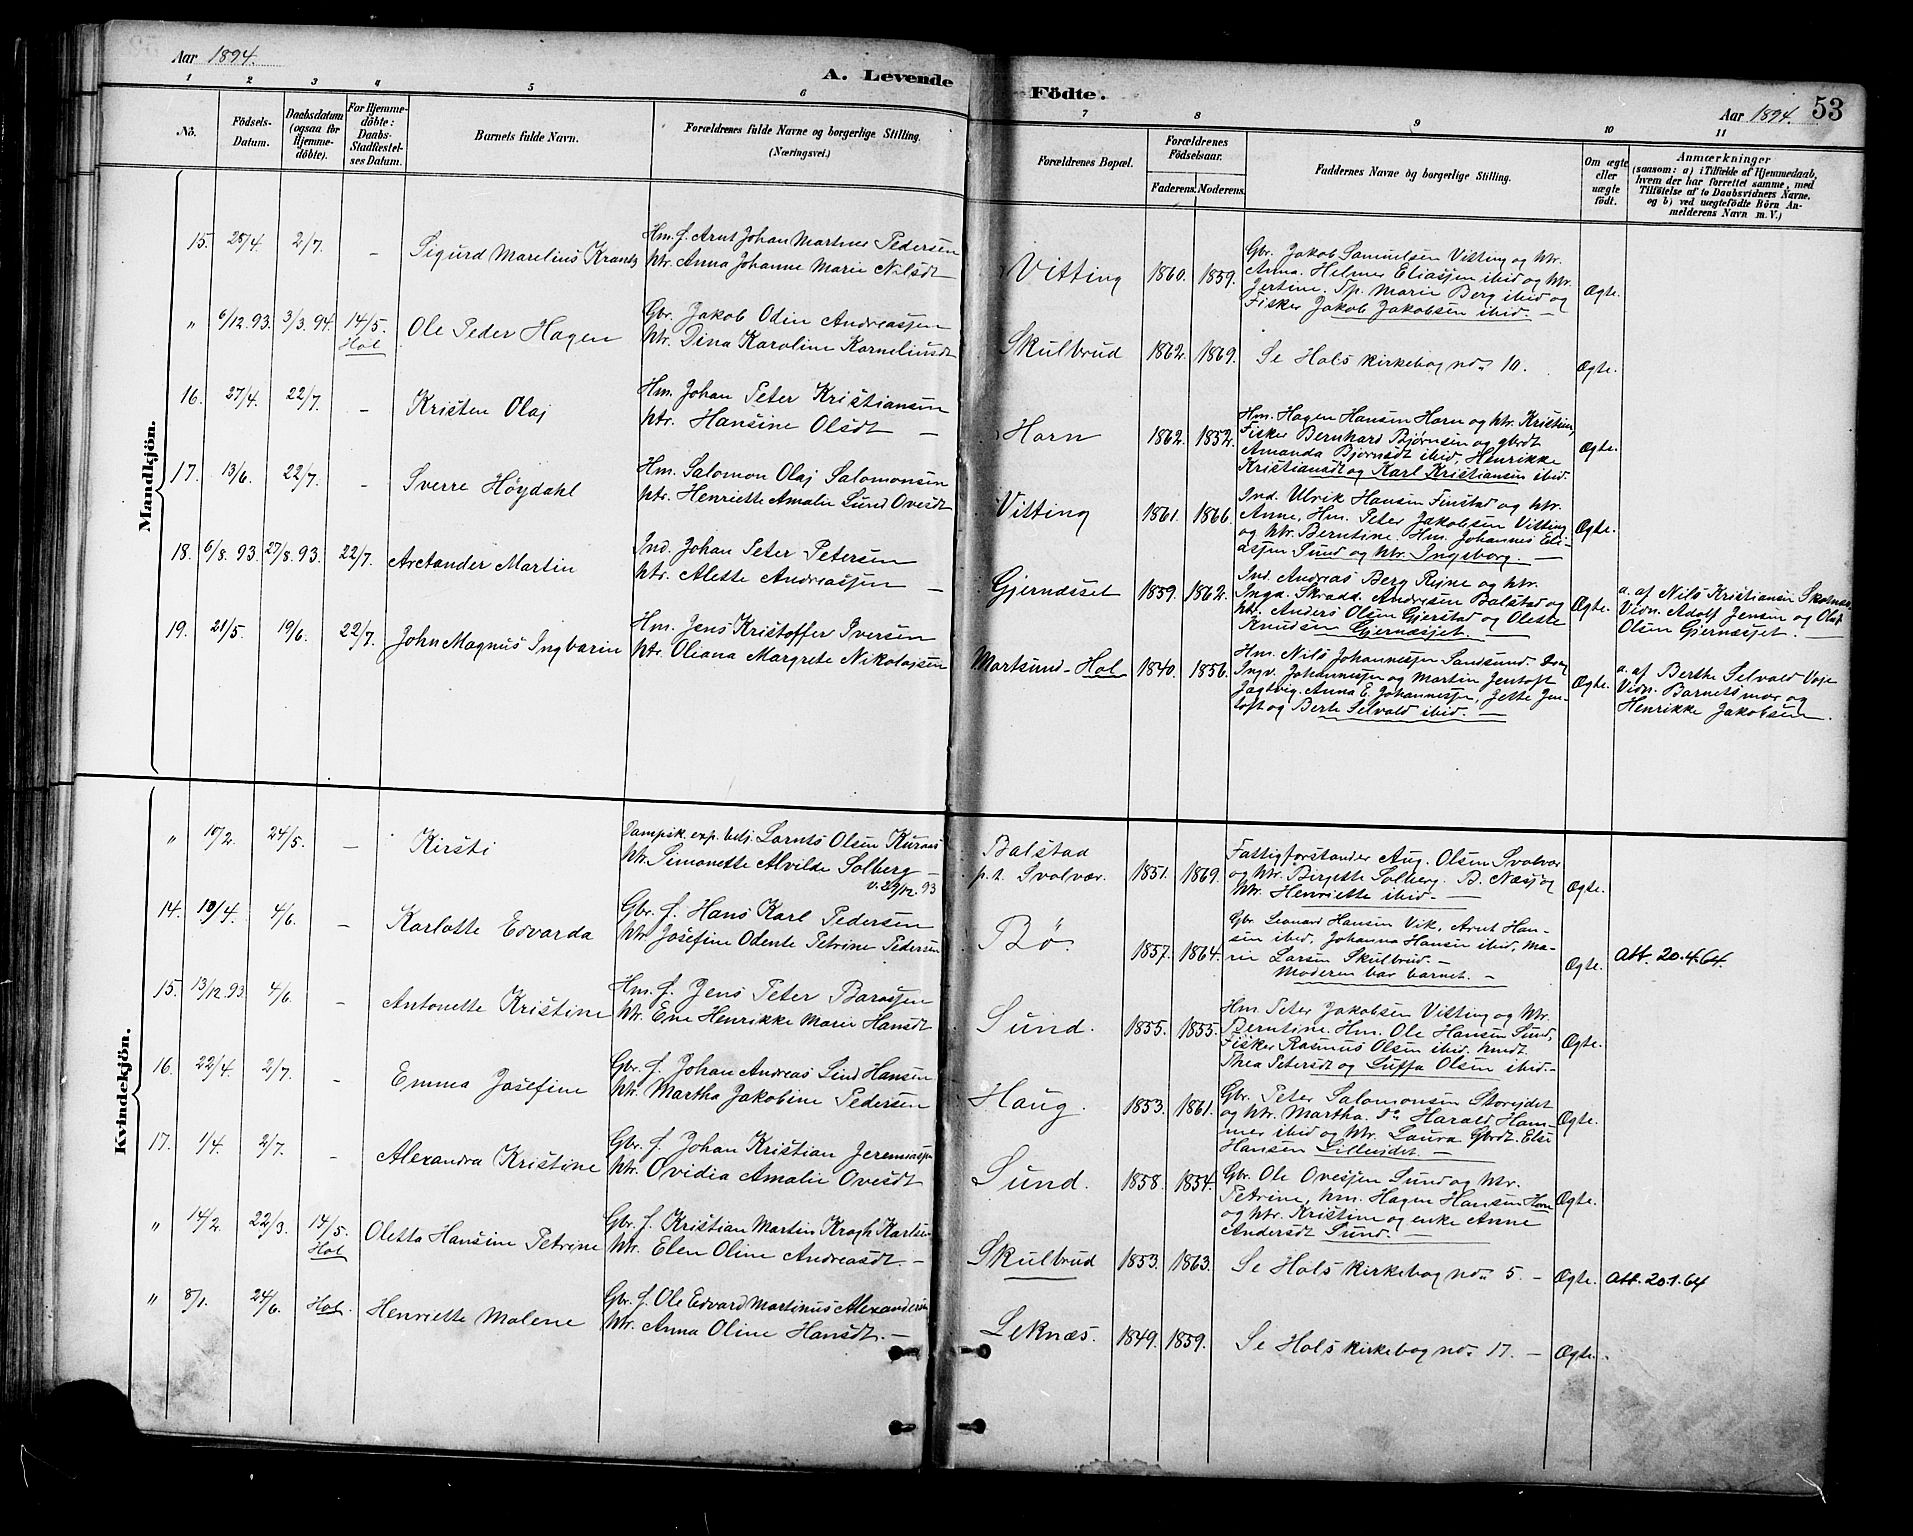 Aar 1894.
A. Levende
Födte.
Aar 1894. 53
1 2 3 4 5 6
7 8 9 10 11
No.
Födsels-
Datum.
Daabsdatum
(ogsaa for
Hjemme-
döbte).
For Hjemme-
döbte:
Daabs-
Stadfæstel-
ses Datum.
Barnets fulde Navn.
Forældrenes fulde Navne og borgerlige Stilling.
(Næringsvei.)
Forældrenes Bopæl.
Forældrenes
Födselsaar.
Faderens. Moderens.
Faddernes Navne og borgerlige Stilling.
Om ægte
eller
uægte
födt.
Anmærkninger
(saasom: a) i Tilfælde af Hjemmedaab,
hvem der har forrettet samme, med
Tilföielse af to Daabsvidners Navne.
og b) ved uægtefödte Börn An-
melderens Navn m. V.)
Mandkjön.
15. 28/4. 2/7. - Sigurd Marelius Krantz
Hm. f. Arnt Johan Martinus Pedersen
htr. Anna Johanne Marie Nilsdt
Vitting 1860. 1859.
Gbr. Jakob Samuelsen Vitting og htr.
Anna. Helmer Eliassen ibid og htr.
Jertine. Sp. Marie Berg ibid og
Fisker Jakob Jakobsen ibid. -
Ægte.
" 6/12.93. 3/3.94. 14/5. Hol Ole Peder Hagen
Gbr. Jakob Odin Andreassen
htr. Dina Karoline Korneliusdt
Skulbrud 1862. 1869. Se Hols kirkebog no. 10. Ægte.
16. 27/4. 22/7. - Kristen Olaj
Hm. Johan Peter Kristiansen
htr. Hansine Olsdt -
Horn 1862. 1852.
Hm. Hagen Hansen Horn og htr. Kristine,
Fisker Bernhard Bjørnsen og gbrdt
Amanda Bjørnsdt ibid, Henrikke
Kristiansdt og Karl Kristiansen ibid.
Ægte.
17. 13/6. 22/7. - Sverre Høydahl
Hm. Salomon Olaj Salomonsen
htr. Henriette Amalie Lund Ovesdt
Vitting 1861. 1866.
Ind. Ulrik Hansen Finstad og htr.
Anne, Hm. Peter Jakobsen Vitting
og htr. Berntine. Hm. Johannes Eli-
assen Sund og htr. Ingeborg. -
Ægte.
18. 6/8.93. 27/8.93. 22/7. Arctander Martin
Ind. Johan Peter Petersen
htr. Alette Andreassen -
Gjernæsset 1859. 1862.
Ind. Andreas Berg Reine og htr.
Inga. Skradd. Andresen Balstad og
htr. Anders Olsen Gjerstad og Olette
Knudsen Gjernæsset. -
Ægte.
a. af Nils Kristiansen
Vidn. Adolf Jensen og
Olsen Gjernæsset.
19. 21/5. 19/6. 22/7. John Magnus Ingvarin
Hm. Jens Kristoffer Iversen
htr. Oliana Margrete Nikolajsen
Mortsund-Hol 1840. 1856.
Hm. Nils Johannessen Sandsund.
Ingv. Johannessen og Martin Jentoft
Jagtvig. Anna E. Johannessen, Jette Jen-
toft og Berte Selvald ibid. -
Ægte.
a. af Berthe Selvald Voje
Vidn. Barnets mor og
Henrikke Jakobsen.
Kvindekjön.
" 10/2. 24/5. - Kirsti
Dampsk. exp. Lornts Olsen
htr. Simonette Alvilde Solberg -
v. 29/12.93
Balstad
p.t. Svolvær. 1851. 1869.
Fattigforstander Aug. Olsen Svolvær
og htr. Birgitte Solberg. B. Næss og
htr. Henriette ibid. -
Ægte.
14. 10/4. 4/6. - Karlotte Edvarda
Gbr. f. Hans Karl Pedersen
htr. Josefine Odente Petrine Pedersen
Bø. 1857. 1864.
Gbr. Leonard Hansen Vik, Arnt Han-
sen ibid, Johanna Hansen ibid, Ma-
rie Larsen Skulbrud. -
Moderen bar barnet. -
Ægte. Att. 20.4.64.
15. 13/12.93. 4/6. - Antonette Kristine
Hm. f. Jens Peter Barossen
htr. Ene Henrikke Marie Hansdt
Sund. 1855. 1855.
Hm Peter Jakobsen Vitting og htr.
Berntine. Hm. Ole Hansen Sund,
Fisker Rasmus Olsen ibid. hmdt
Thea Petersdt og Luffa Olsen ibid. -
Ægte.
16. 22/4. 2/7. - Emma Josefine
Gbr. f. Johan Andreas Lind Hansen
htr. Martha Jakobine Pedersen
Haug. 1853. 1861.
Gbr. Peter Salomonsen Storeidet
og htr. Martha. Do Harald Ham-
mer ibid og htr. Laura Gbrdt. Elsi
Hansen Lilleidet. -
Ægte.
17. 1/4. 2/7. - Alexandra Kristine
Gbr. f. Johan Kristian Jeremiassen
htr. Ovidia Amalie Ovesdt
Sund. 1858. 1854.
Gbr. Ole Ovessen Sund og htr.
Petrine, hm. Hagen Hansen Horn
og htr. Kristine og enke Anne
Andersdt Sund. -
Ægte.
" 14/2. 22/3. 14/5. Hol Oletta Hansine Petrine
Gbr. f. Kristian Martin Krogh Karlsen
htr. Elen Oline Andreasdt. -
Skulbrud 1853. 1863. Se Hols kirkebog no. 5. - Ægte. Att. 20.1.64
" 8/1. 24/6. Hol. Henriette Malene
Gbr. f. Ole Edvard Martinus Alexandersen
htr. Anna Oline Hansdt. -
Leknæs. 1849. 1859. Se Hols kirkebog no. 17. - Ægte.